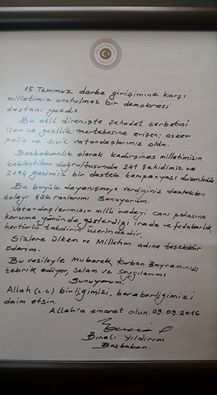 15 Temmuz darbe girişimine karşı
milletimiz unutulmaz bir demokrasi
destanı yazdı.
Bu asil direnişte şehadet şerbetini
içen ve gazilik mertebesine erişen; asker
polis ve sivil vatandaşlarımız oldu.
Başbakanlık olarak kadirşinas milletimizin
beklentileri doğrultusunda 241 şehidimiz ve
2194 gazimiz bir destek kampanyası düzenledik.
Bu büyük dayanışmaya verdiğiniz destekten
dolayı şükranlarımı sunuyorum.
Vatandaşlarımızın milli iradeyi canı pahasına
koruma yönünde gösterdiği irade ve fedakarlık
her türlü takdirin üzerindedir.
Sizlere ülkem ve Milletim adına teşekkür
ederim.
Bu vesileyle Mübarek Kurban Bayramınızı
tebrik ediyor, Selam ve Saygılarımı
Sunuyorum.
Allah (c.c) birliğimizi, beraberliğimizi
daim etsin.
Allah'a emanet olun. 09.09.2016
Binali Yıldırım
Başbakan